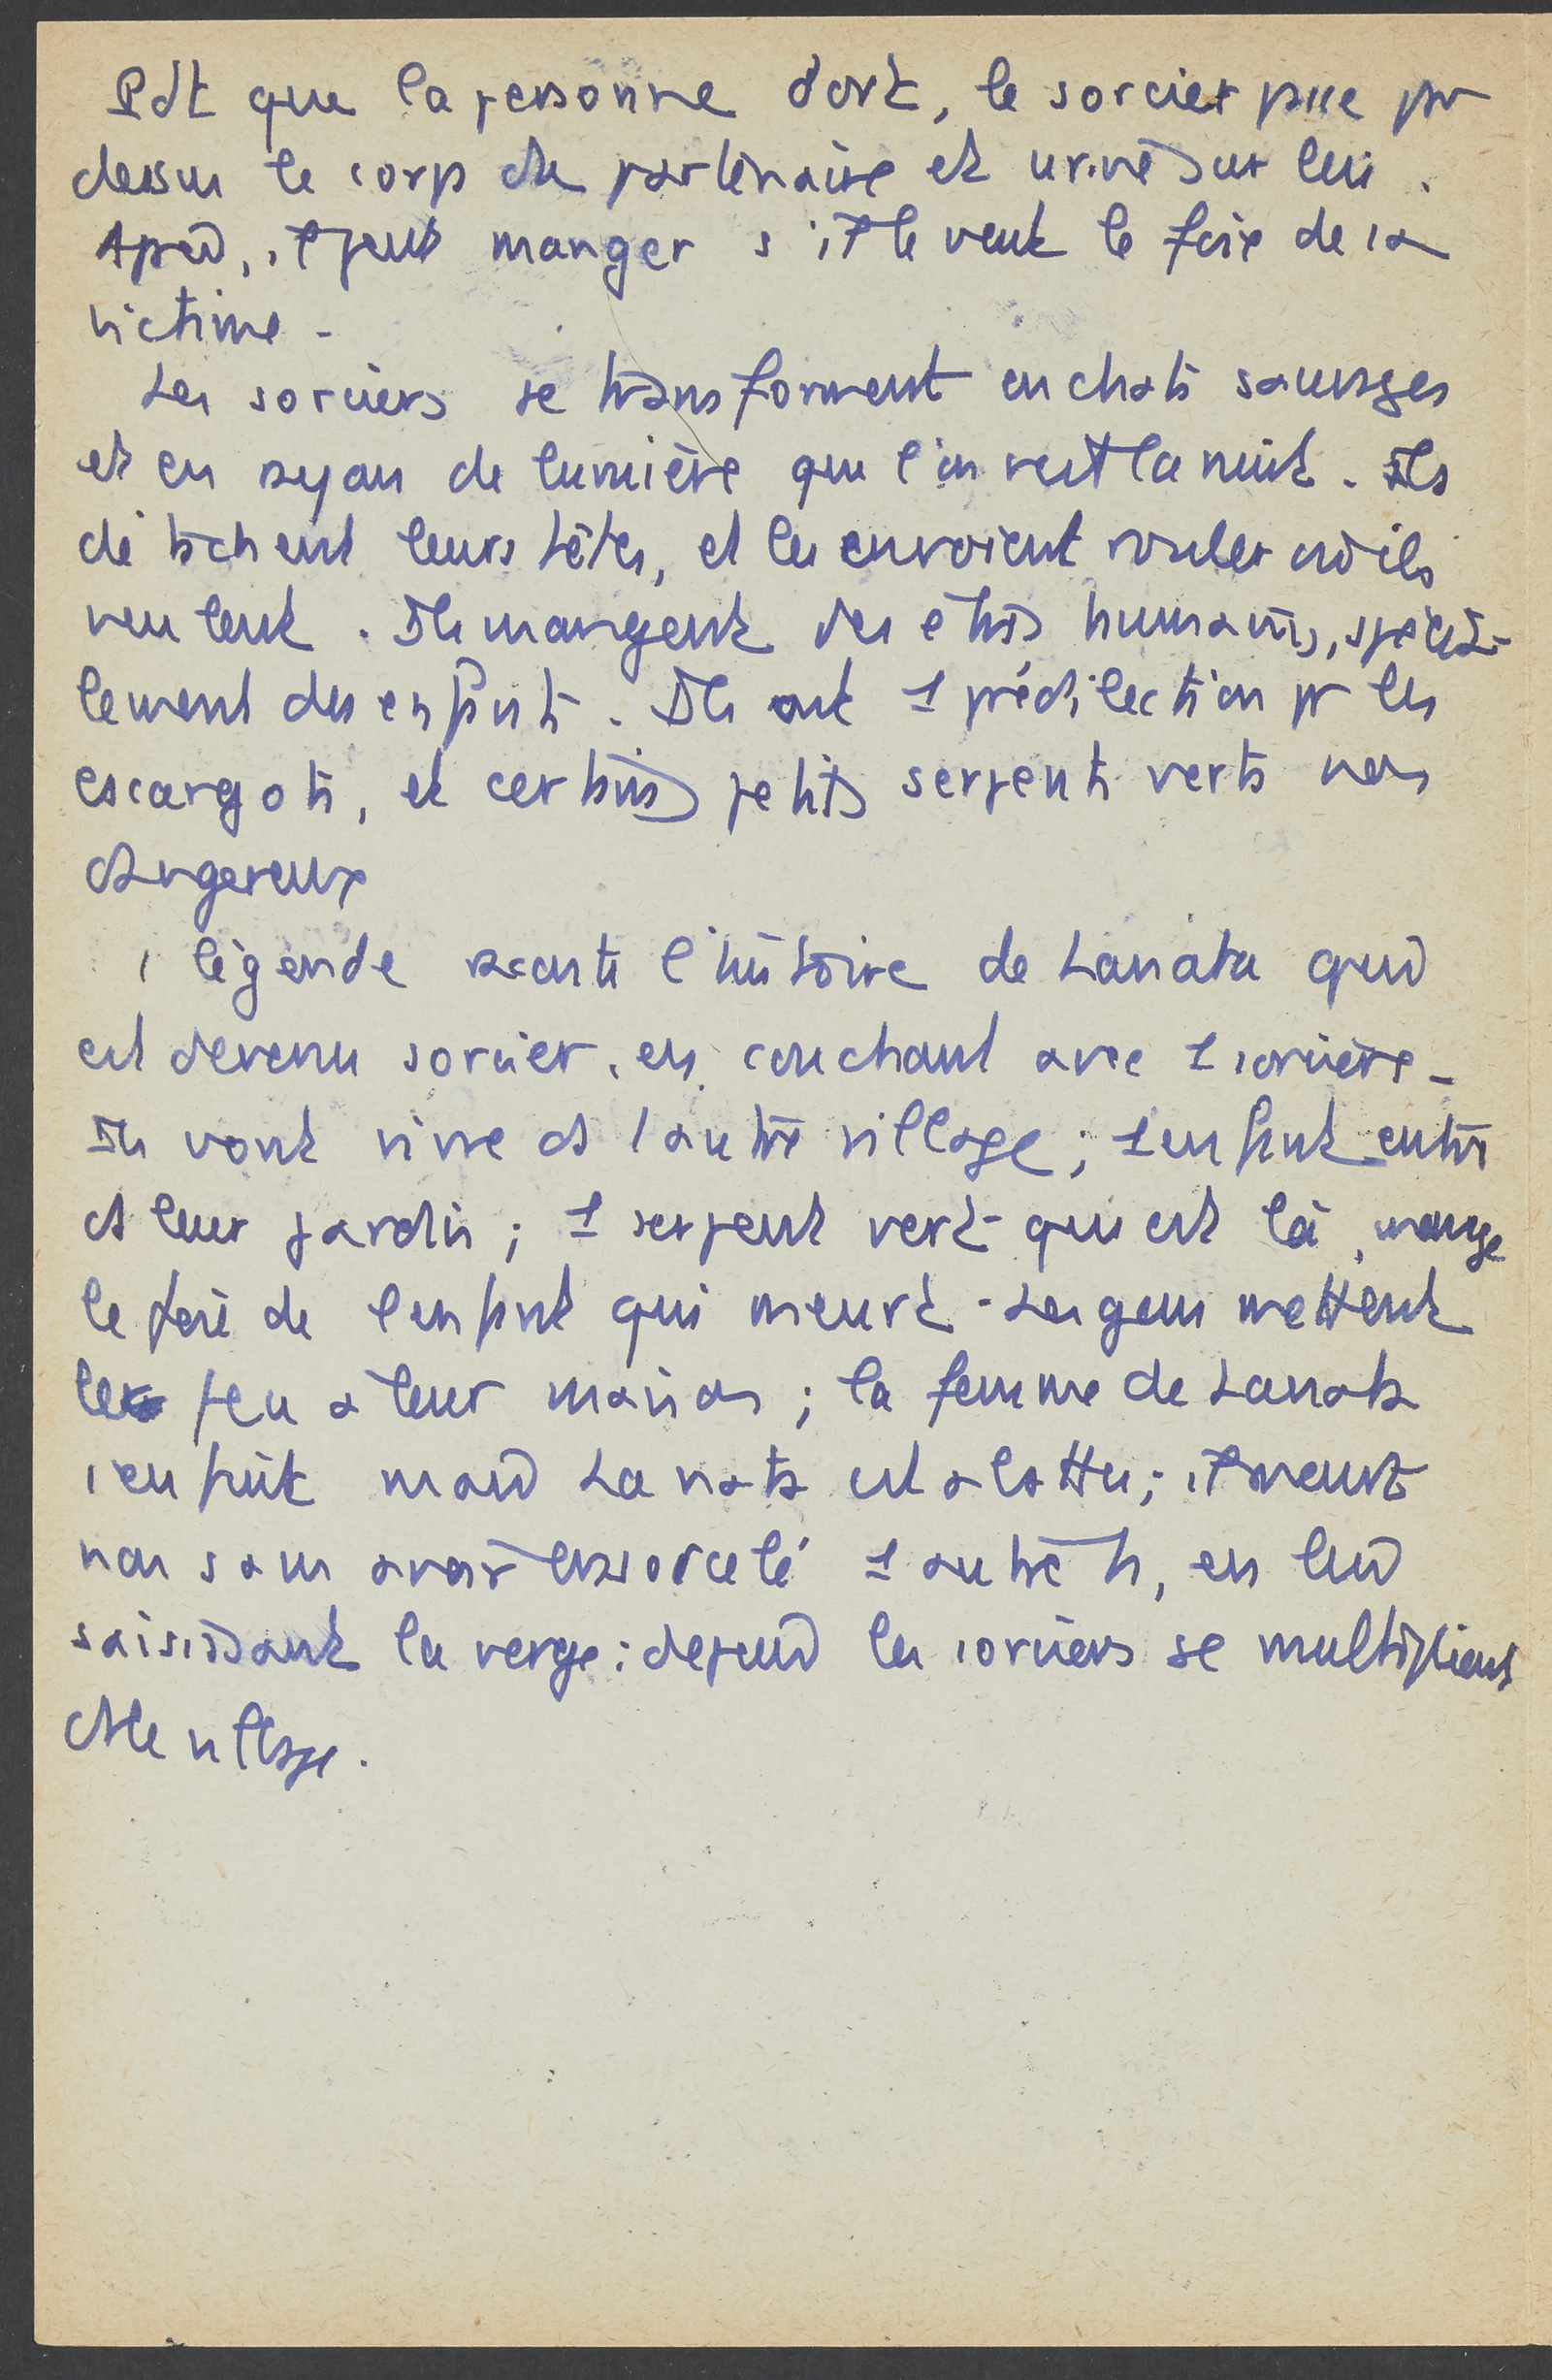 Pdt que la personne dort, le sorcier passe par
dessus le corps du partenaire et urine sur lui.
Après, il peut manger s'il le veut le foie de sa
victime -
Les sorciers se transforment en chats sauvages
et en rayons de lumière que l'on voit la nuit. Ils
détachent leurs têtes, et les envoient rouler où ils
veulent. Ils mangent des êtres humains, spécia-
lement des enfants. Ils ont 1 prédilection pr les
escargots, et certains petits serpents verts non
dangereux
1 légende raconte l'histoire de Lanata qui
est devenu sorcier, en couchant avec 1 sorcière -
Ils vont vivre ds 1 autre village ; 1 enfant entre
ds leur jardin ; 1 serpent vert qui est là, mange
le foie de l'enfant qui meurt - Les gens mettent
le feu à leur maison ; la femme de Lanata
s'enfuit mais Lanata est abattu ; il meurt
non sans avoir ensorcelé 1 autre h, en lui
saisissant la verge : depuis les sorciers se multiplient
ds le village.